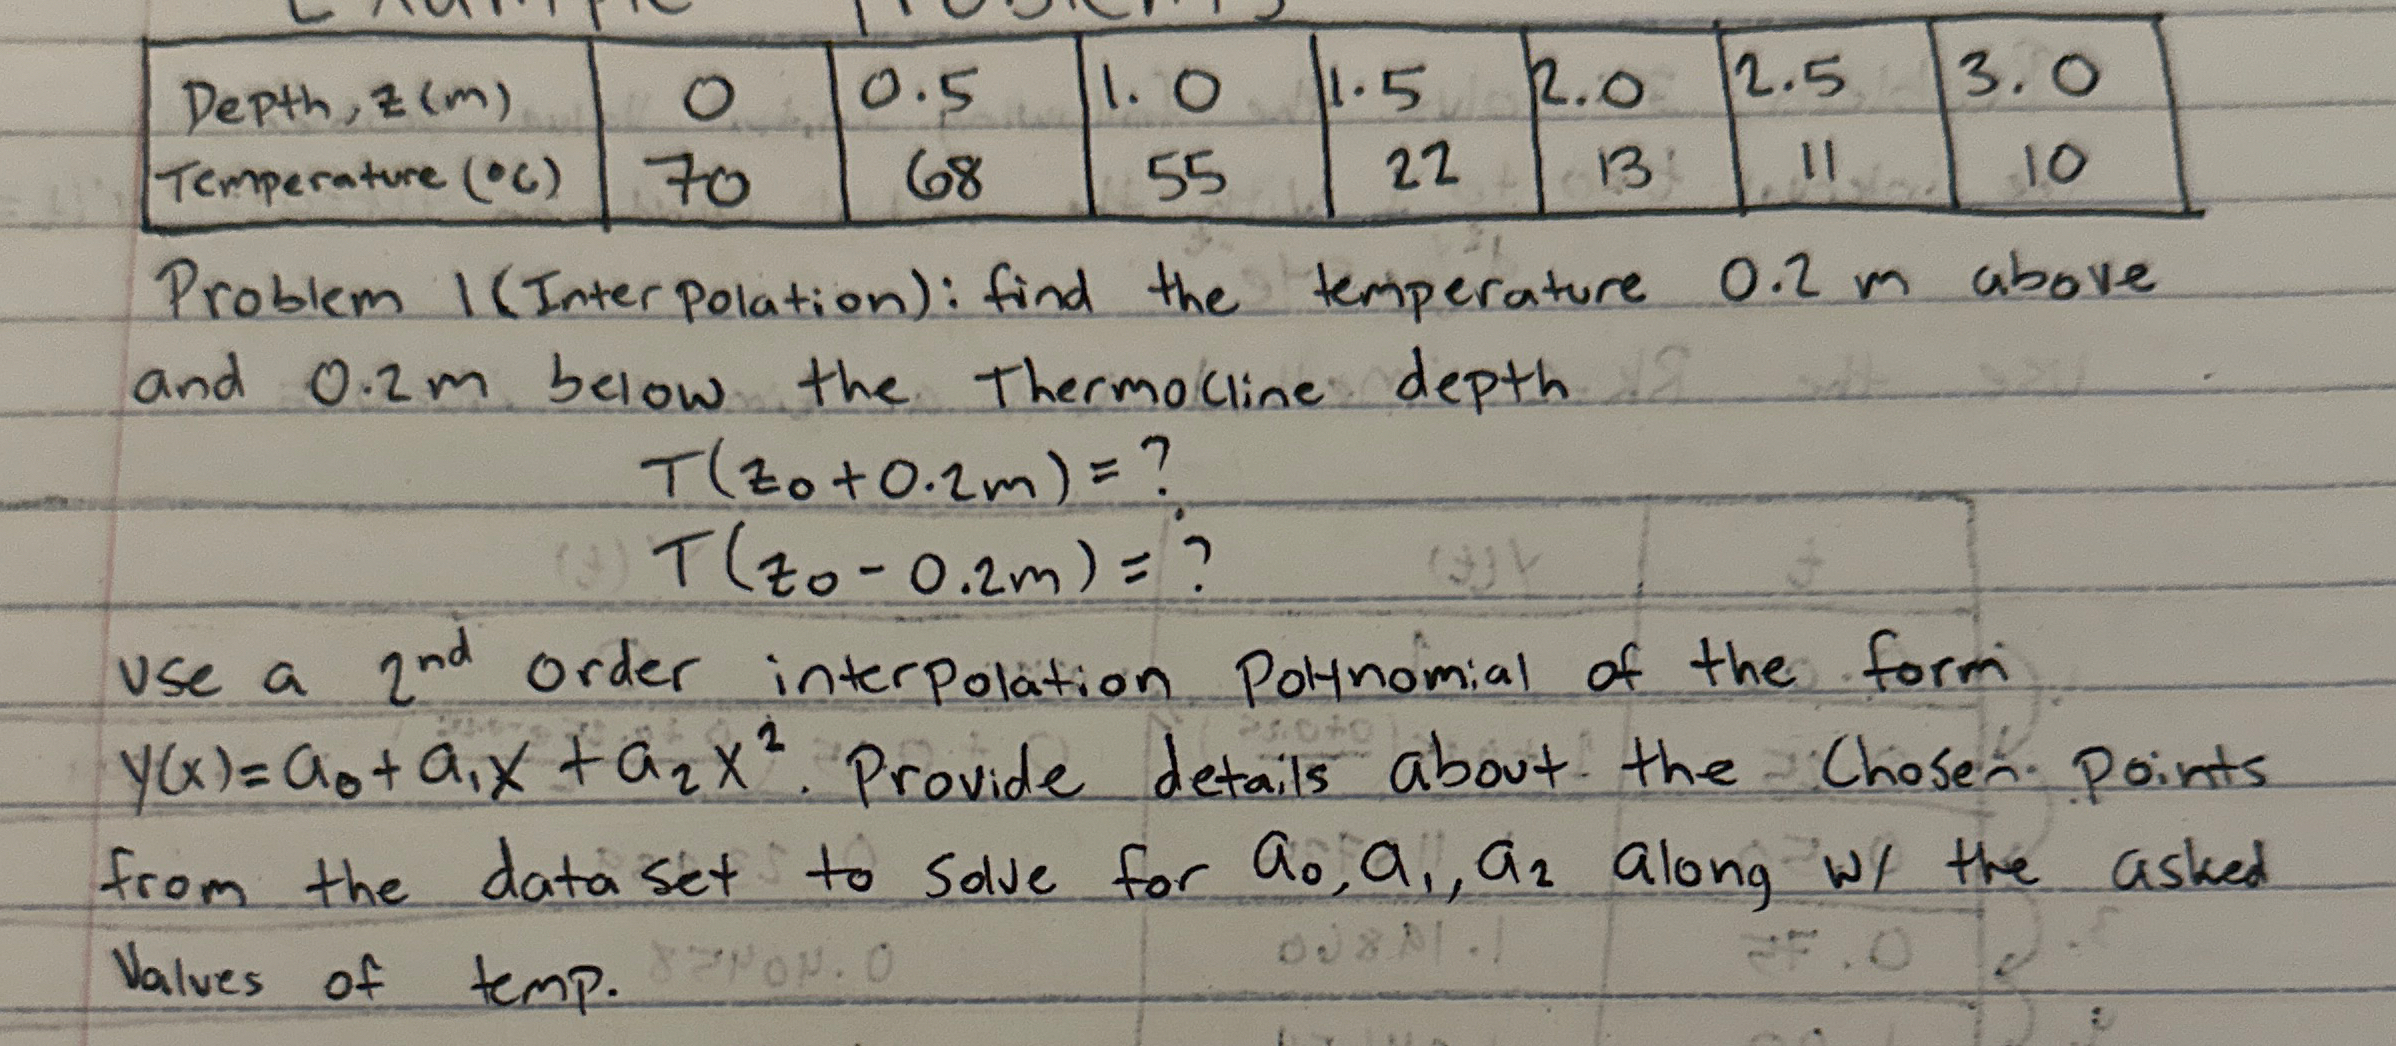 Example Problems
Depth, z(m) 0 0.5 1.0 1.5 2.0 2.5 3.0
Temperature (°C) 70 68 55 22 13 11 10
Problem 1 (Interpolation): find the temperature 0.2 m above
and 0.2m below the Thermocline depth
T(z₀+0.2m)=?
T(z₀-0.2m)=?
use a 2nd order interpolation Polynomial of the form
y(x)=a₀+a₁x+a₂x². Provide details about the Chosen Points
from the data set to solve for a₀, a₁, a₂ along w/ the asked
Values of temp.